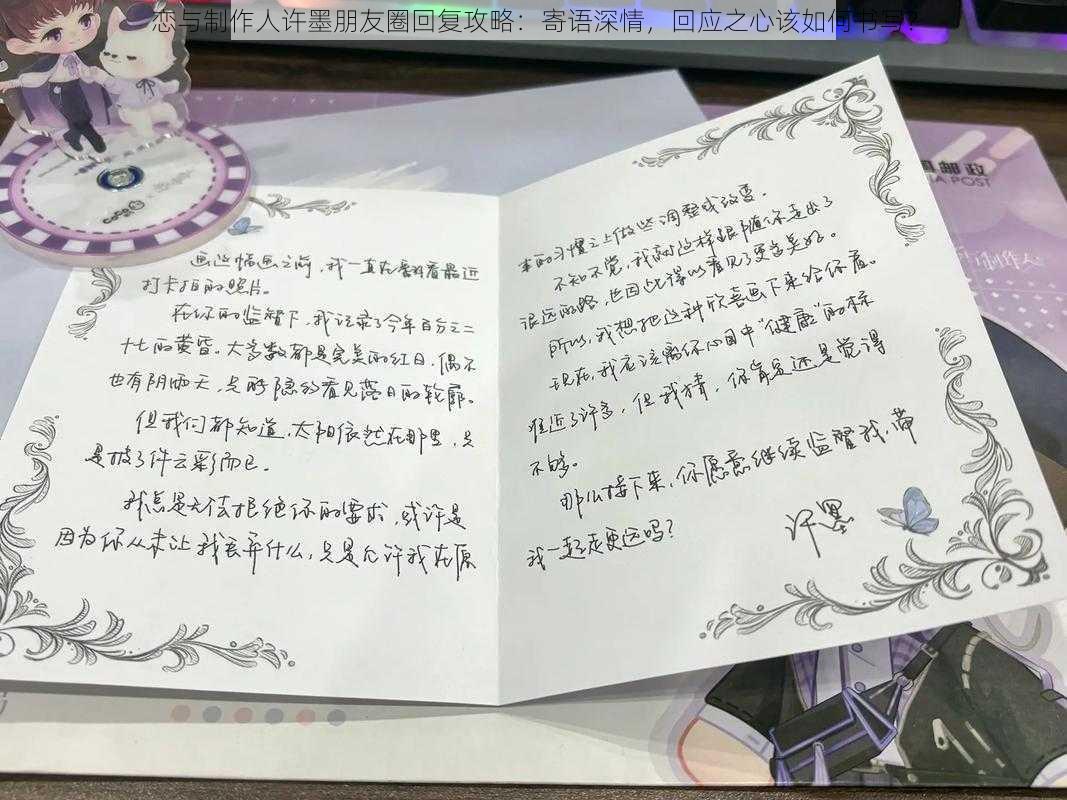 恋与制作人许墨朋友圈回复攻略：寄语深情，回应之心该如何书写？
画这幅画之前，我一直在翻看最近
打卡拍的照片。
在你的监督下，我记录了今年百分之二
十七的黄昏。大多数都是完美的红日，偶尔
也有阴雨天，只能隐约看见落日的轮廓。
但我们都知道，太阳依然在那里，只
是披了件云彩而已。
我总是无法拒绝你的要求，或许是
因为你从未让我丢弃什么，只是允许我在原
本的习惯之上做些调整或改变。
不知不觉，我就这样跟随你走出了
很远的路，也因此得以看见了更多美好。
所以，我想把这种欣喜画下来给你看。
现在，我应该离你心目中“健康”的标
准近了许多，但我猜，你肯定还是觉得
不够。
那么接下来，你愿意继续监督我，带
我一起走更远吗？
许墨
邮政
POST
制作人